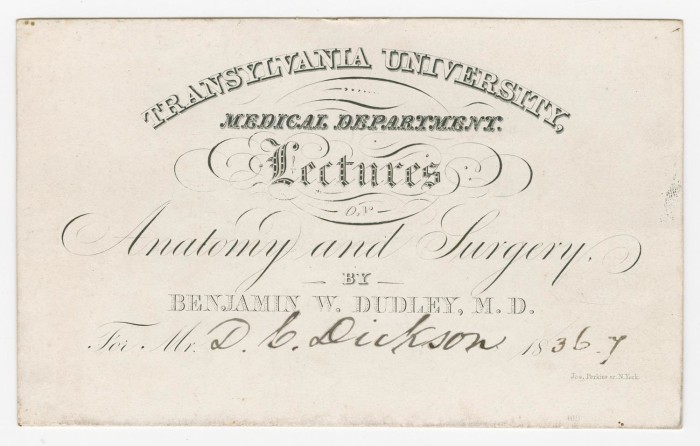 TRANSYLVANIA UNIVERSITY,
MEDICAL DEPARTMENT.
Lectures
ON
Anatomy and Surgery.
BY
BENJAMIN W. DUDLEY, M. D.
For Mr. D. C. Dickson 1836.7
Perkins N. York.